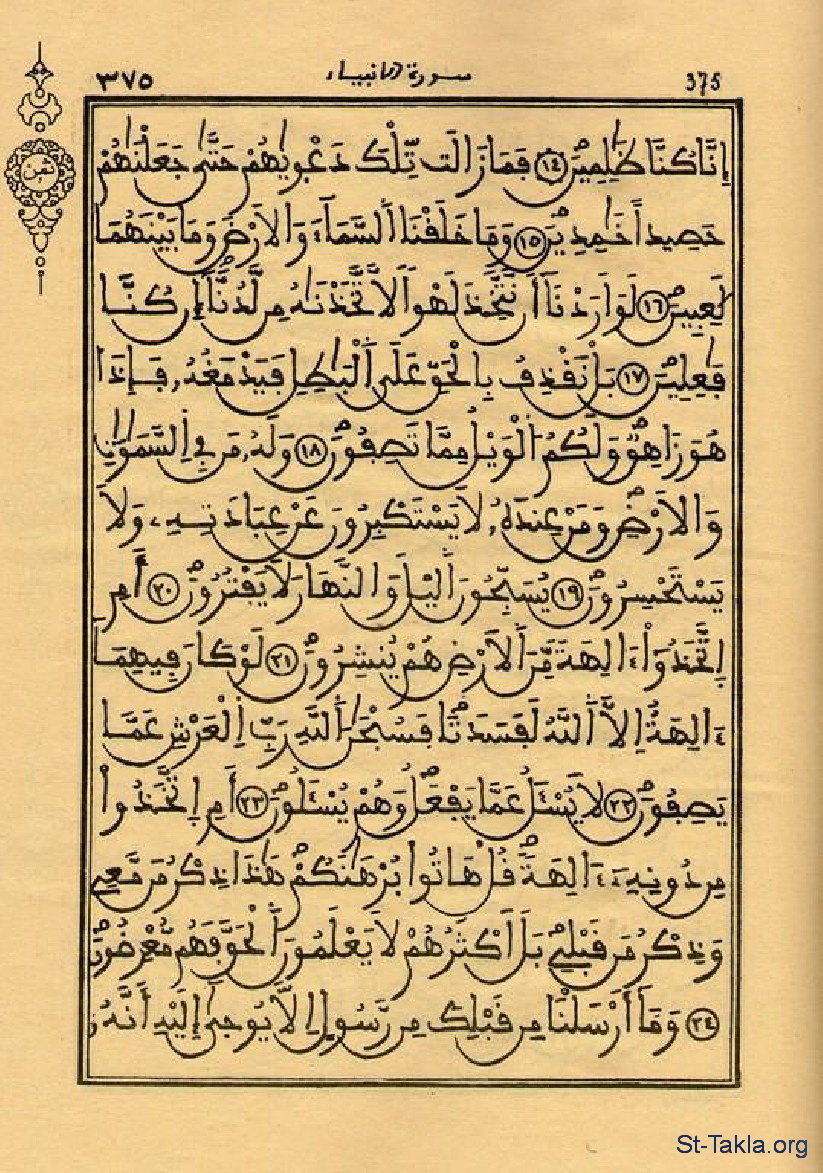 ٣٧٥ سورة الانبياء 375
ثمن
إِنَّا كُنَّا ظَٰلِمِينَ ١٤ فَمَا زَالَت تِّلْكَ دَعْوَىٰهُمْ حَتَّىٰ جَعَلْنَٰهُمْ
حَصِيداً خَٰمِدِينَ ١٥ وَمَا خَلَقْنَا اَ۬لسَّمَآءَ وَالَارْضَ وَمَا بَيْنَهُمَا
لَٰعِبِينَ ١٦ لَوَ اَرَدْنَآ أَن نَّتَّخِذَ لَهْواٗ لَّاتَّخَذْنَٰهُ مِن لَّدُنَّآ إِن كُنَّا
فَٰعِلِينَ ١٧ بَلْ نَقْذِفُ بِالْحَقِّ عَلَى اَ۬لْبَٰطِلِ فَيَدْمَغُهُۥ فَإِذَا
هُوَ زَاهِقٞ وَلَكُمُ اُ۬لْوَيْلُ مِمَّا تَصِفُونَ ١٨ وَلَهُۥ مَن فِى اِ۬لسَّمَٰوَٰتِ
وَالَارْضِ وَمَنْ عِندَهُۥ لَا يَسْتَكْبِرُونَ عَنْ عِبَادَتِهِۦ وَلَا
يَسْتَحْسِرُونَ ١٩ يُسَبِّحُونَ اَ۬ليْلَ وَالنَّهَارَ لَا يَفْتُرُونَ ٢٠ أَمِ
اِ۪تَّخَذُوٓاْ ءَالِهَةٗ مِّنَ اَ۬لَارْضِ هُمْ يُنشِرُونَ ٢١ لَوْ كَانَ فِيهِمَآ
ءَالِهَةٌ اِلَّا اَ۬للَّهُ لَفَسَدَتَا فَسُبْحَٰنَ اَ۬للَّهِ رَبِّ اِ۬لْعَرْشِ عَمَّا
يَصِفُونَ ٢٢ لَا يُسْـَٔلُ عَمَّا يَفْعَلُ وَهُمْ يُسْـَٔلُونَ ٢٣ أَمِ اِ۪تَّخَذُواْ
مِن دُونِهِۦٓ ءَالِهَةٗ قُلْ هَاتُواْ بُرْهَٰنَكُمْ هَٰذَا ذِكْرُ مَن مَّعِى
وَذِكْرُ مَن قَبْلِى بَلَ اَكْثَرُهُمْ لَا يَعْلَمُونَ اَ۬لْحَقَّ فَهُم مُّعْرِضُونَ
٢٤ وَمَآ أَرْسَلْنَا مِن قَبْلِكَ مِن رَّسُولٍ اِلَّا يُوحَىٰٓ إِلَيْهِ أَنَّهُۥ
St-Takla.org